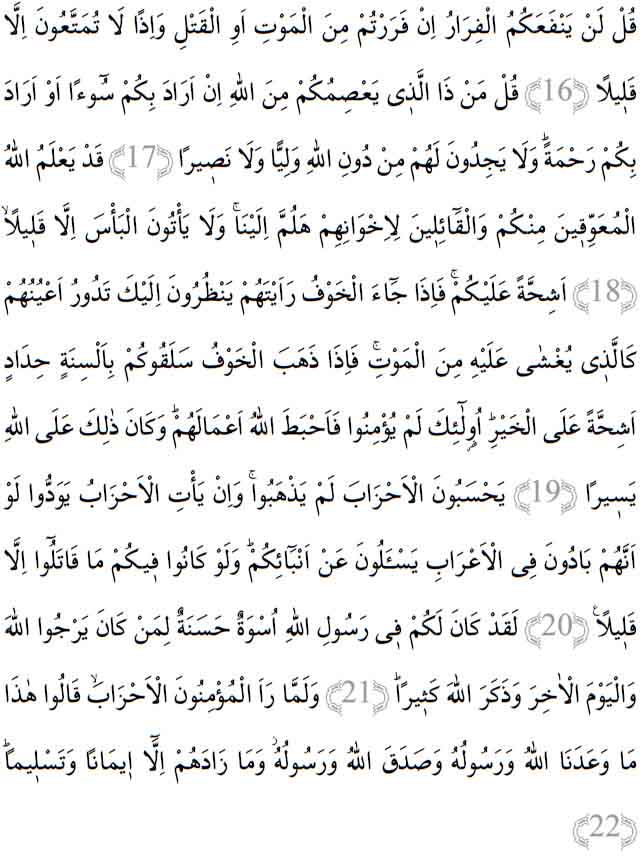 قُلْ لَنْ يَنْفَعَكُمُ الْفِرَارُ اِنْ فَرَرْتُمْ مِنَ الْمَوْتِ اَوِ الْقَتْلِ وَاِذًا لَا تُمَتَّعُونَ اِلَّا
قَل۪يلًا ﴿16﴾ قُلْ مَنْ ذَا الَّذ۪ي يَعْصِمُكُمْ مِنَ اللهِ اِنْ اَرَادَ بِكُمْ سُٓوءًا اَوْ اَرَادَ
بِكُمْ رَحْمَةًۜ وَلَا يَجِدُونَ لَهُمْ مِنْ دُونِ اللهِ وَلِيًّا وَلَا نَص۪يرًا ﴿17﴾ قَدْ يَعْلَمُ اللهُ
الْمُعَوِّق۪ينَ مِنْكُمْ وَالْقَٓائِل۪ينَ لِاِخْوَانِهِمْ هَلُمَّ اِلَيْنَاۚ وَلَا يَأْتُونَ الْبَأْسَ اِلَّا قَل۪يلًاۙ
﴿18﴾ اَشِحَّةً عَلَيْكُمْۚ فَاِذَا جَٓاءَ الْخَوْفُ رَاَيْتَهُمْ يَنْظُرُونَ اِلَيْكَ تَدُورُ اَعْيُنُهُمْ
كَالَّذ۪ي يُغْشٰى عَلَيْهِ مِنَ الْمَوْتِۚ فَاِذَا ذَهَبَ الْخَوْفُ سَلَقُوكُمْ بِاَلْسِنَةٍ حِدَادٍ
اَشِحَّةً عَلَى الْخَيْرِۜ اُو۬لٰٓئِكَ لَمْ يُؤْمِنُوا فَاَحْبَطَ اللهُ اَعْمَالَهُمْۜ وَكَانَ ذٰلِكَ عَلَى اللهِ
يَس۪يرًا ﴿19﴾ يَحْسَبُونَ الْاَحْزَابَ لَمْ يَذْهَبُواۚ وَاِنْ يَأْتِ الْاَحْزَابُ يَوَدُّوا لَوْ
اَنَّهُمْ بَادُونَ فِي الْاَعْرَابِ يَسْـَٔلُونَ عَنْ اَنْبَٓائِكُمْۜ وَلَوْ كَانُوا ف۪يكُمْ مَا قَاتَلُٓوا اِلَّا
قَل۪يلًا۟ ﴿20﴾ لَقَدْ كَانَ لَكُمْ ف۪ي رَسُولِ اللهِ اُسْوَةٌ حَسَنَةٌ لِمَنْ كَانَ يَرْجُوا اللهَ
وَالْيَوْمَ الْاٰخِرَ وَذَكَرَ اللهَ كَث۪يرًاۜ ﴿21﴾ وَلَمَّا رَاَ الْمُؤْمِنُونَ الْاَحْزَابَۙ قَالُوا هٰذَا
مَا وَعَدَنَا اللهُ وَرَسُولُهُ وَصَدَقَ اللهُ وَرَسُولُهُۘ وَمَا زَادَهُمْ اِلَّٓا ا۪يمَانًا وَتَسْل۪يماًۜ
﴿22﴾